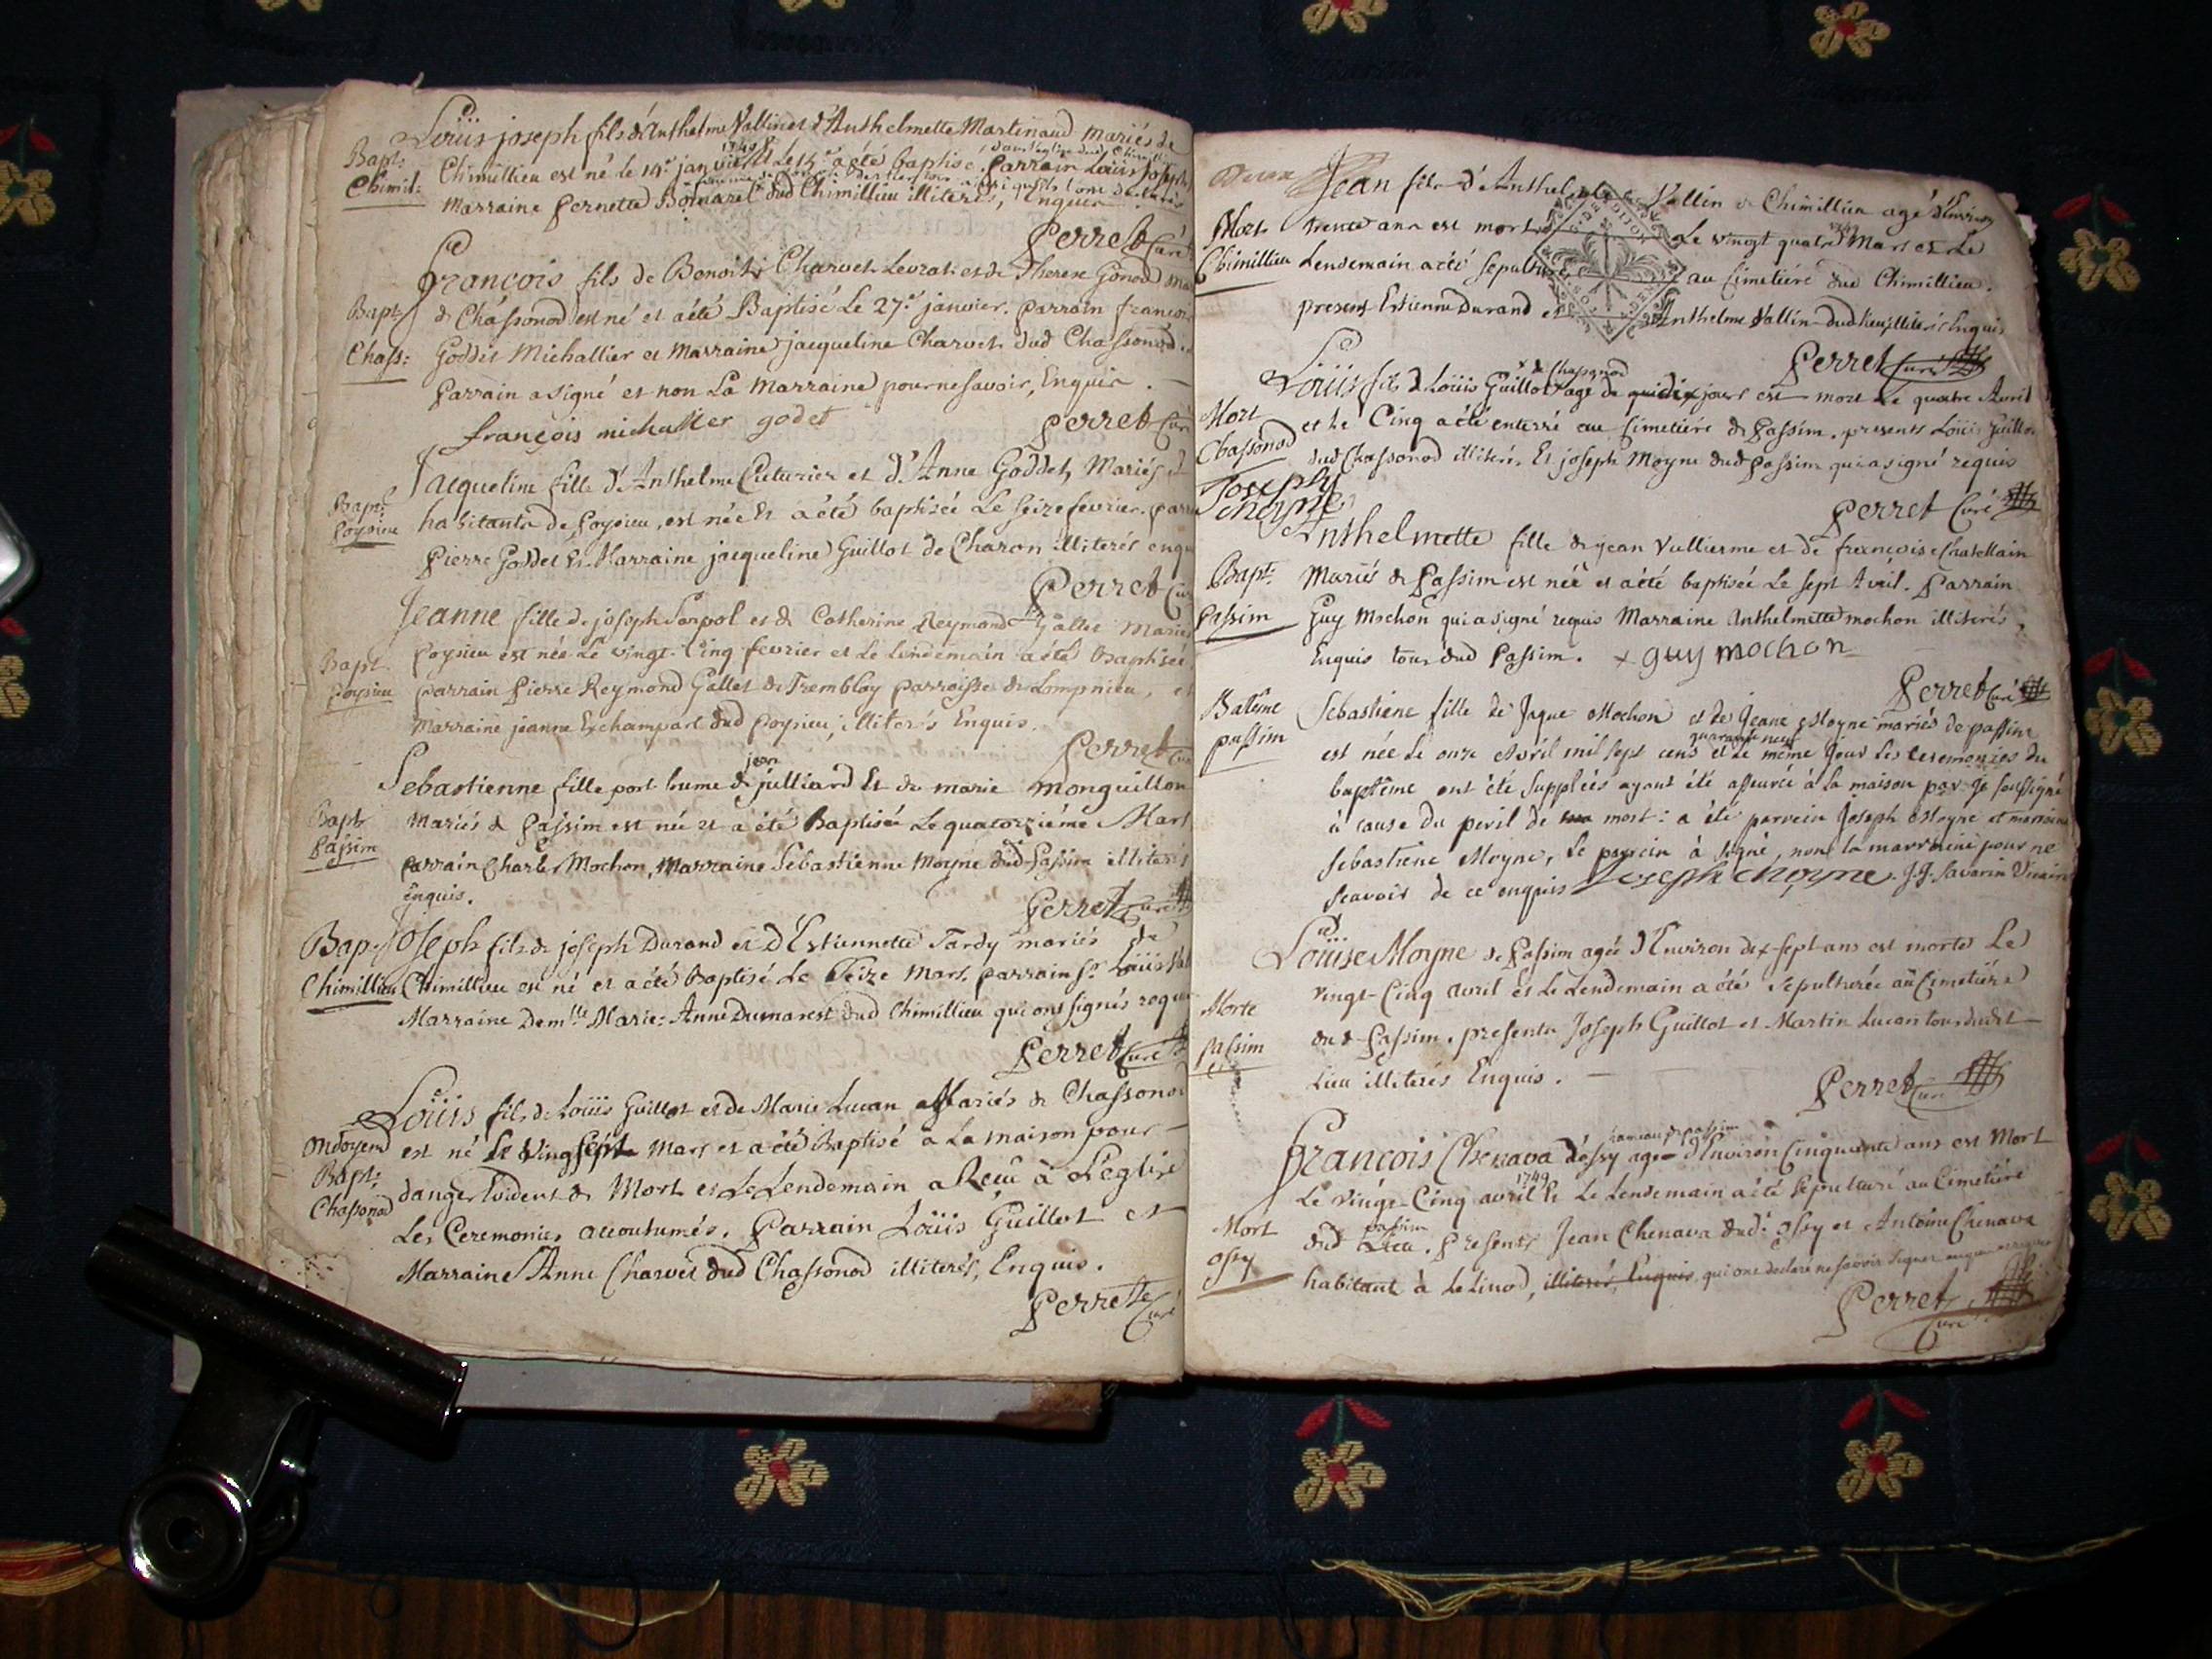 Loüis joseph fils d'Anthelme Vallin et d'Anthelmette Martinaud Mariés de
Bapt:
Chimillieu est né le 14e janvier 1749 et le 15e a été baptisé. Parrain Loüis joseph
Chimil:
Marraine Pernette dud Chimillieu illiterés, Enquis
Perret Curé
François fils de Benoit Charvet Levrat et de Therese Gonod
Bapt:
de Chassonod est né et a été Baptisé Le 27e janvier. Parrain francois
Chass:
Goddet Michallier et Marraine jacqueline Charvet dud Chassonod.
Parrain a signé et non La Marraine pour ne savoir, Enquis.
françois michallier godet
Perret Curé
Jacqueline fille d'Anthelme Cuturier et d'Anne Goddet, Mariés et
Bapt:
Poysieu
habitants de Poysieu, est née Et a été baptisée Le seize fevrier.
Pierre Goddet Et Marraine jacqueline Guillot de Charon illiterés
Perret Curé
Jeanne fille de joseph et de Catherine Reymond Gallet Mariés
Bapt.
Poysieu est née Le vingt Cinq fevrier et Le lendemain a été Baptisée
Poysieu
parrain Pierre Reymond Gallet de Trembloy parroisse de Lompnieu, et
Marraine jeanne Exchampart dud Poysieu, illiterés Enquis.
Perret Curé
jean
Sebastienne fille post hume de julliard Et de marie Monguillon
Bapt
Mariés de Passim est née et a été Baptisée Le quatorziéme Mars
Passim
parrain Charle Mochon, Marraine Sebastienne Moyne dud Passim illiterés
Enquis.
Perret Curé
Bap:
Joseph fils de joseph Durand et d'Estiennette Tardy mariés de
Chimillieu
Chimillieu est né et a été Baptisé Le Seize Mars. parrain Sr Loüis
Marraine Demlle Marie-Anne Dumarest dud Chimillieu qui ont signés
Perret Curé
Loüis fils de Loüis Guillot et de Marie Lucan Mariés de Chassonod
ondoyend
est né Le Vingsept Mars et a été Baptisé a La maison pour
Bapt:
danger Evident de Mort et Le Lendemain a Reçu à L'eglise
Chassonod
Les Ceremonies accoutumés. Parrain Loüis Guillot et
Marraine Anne Charvet dud Chassonod illiterés, Enquis.
Perret Curé
Jean fils d'Anthelme Vallin de Chimillieu agé d'Environ
Mort
trente ans est mort Le vingt quatre Mars 1749 et Le
Chimillieu
Lendemain a été sepulturé au Cimetiére dud Chimillieu.
presens Estienne Durand et Anthelme Vallin dud lieu illiterés Enquis
Perret Curé
de Chassonod
Loüis fils de Loüis Guillot agé de dix jours est mort Le quatre Avril
Mort
et Le Cinq a été enterré au Cimetiére de Passim. presents Loüis Guillot
Chassonod
dud Chassonod illiteré, Et joseph Moyne dud Passim qui a signé requis
Joseph
Moyne
Perret Curé
Anthelmette fille de jean Vullierme et de francoise Chatellain
Bapt.
Mariés de Passim est née et a été baptisée Le sept Avril. Parrain
Passim
Guy Mochon qui a signé requis Marraine Anthelmette mochon illiterés,
Enquis tous dud Passim. + guy mochon
Perret Curé
Batême
Sebastiene fille de Jaque Mochon et de Jeane Moyne mariés de passim
passim
est née Le onze Avril mil sept cens quarante neuf et Le même Jour Les ceremonies du
baptême ont été suppleés ayant été assurée à La maison par Je soussigné
à cause du peril de mort: a été parrein Joseph Moyne et marraine
Sebastiene Moyne, Le parrein à signé, non la marraine pour ne
scavoir de ce enquis Joseph Moyne J.J. Savarin Vicaire
Loüise Moyne de Passim agée d'Environ dix-sept ans est morte Le
Morte
vingt-Cinq avril et Le Lendemain a été sepulturée au Cimetiére
passim
dud Passim. presents Joseph Guillot et Martin Lucan tous dudit
Lieu illiterés Enquis.
Perret Curé
hameau de passim
François Chenava d'Ossy agé d'Environ Cinquante ans est Mort
Le vingt-Cinq avril 1749 Et Le Lendemain a été sepulturé au Cimetiére
Mort
dud passim. Presents Jean Chenava dud: Ossy et Antoine Chenava
Ossy
habitant à Le Linod, illiterés, Enquis, qui ont declaré ne scavoir signer
Perret Curé